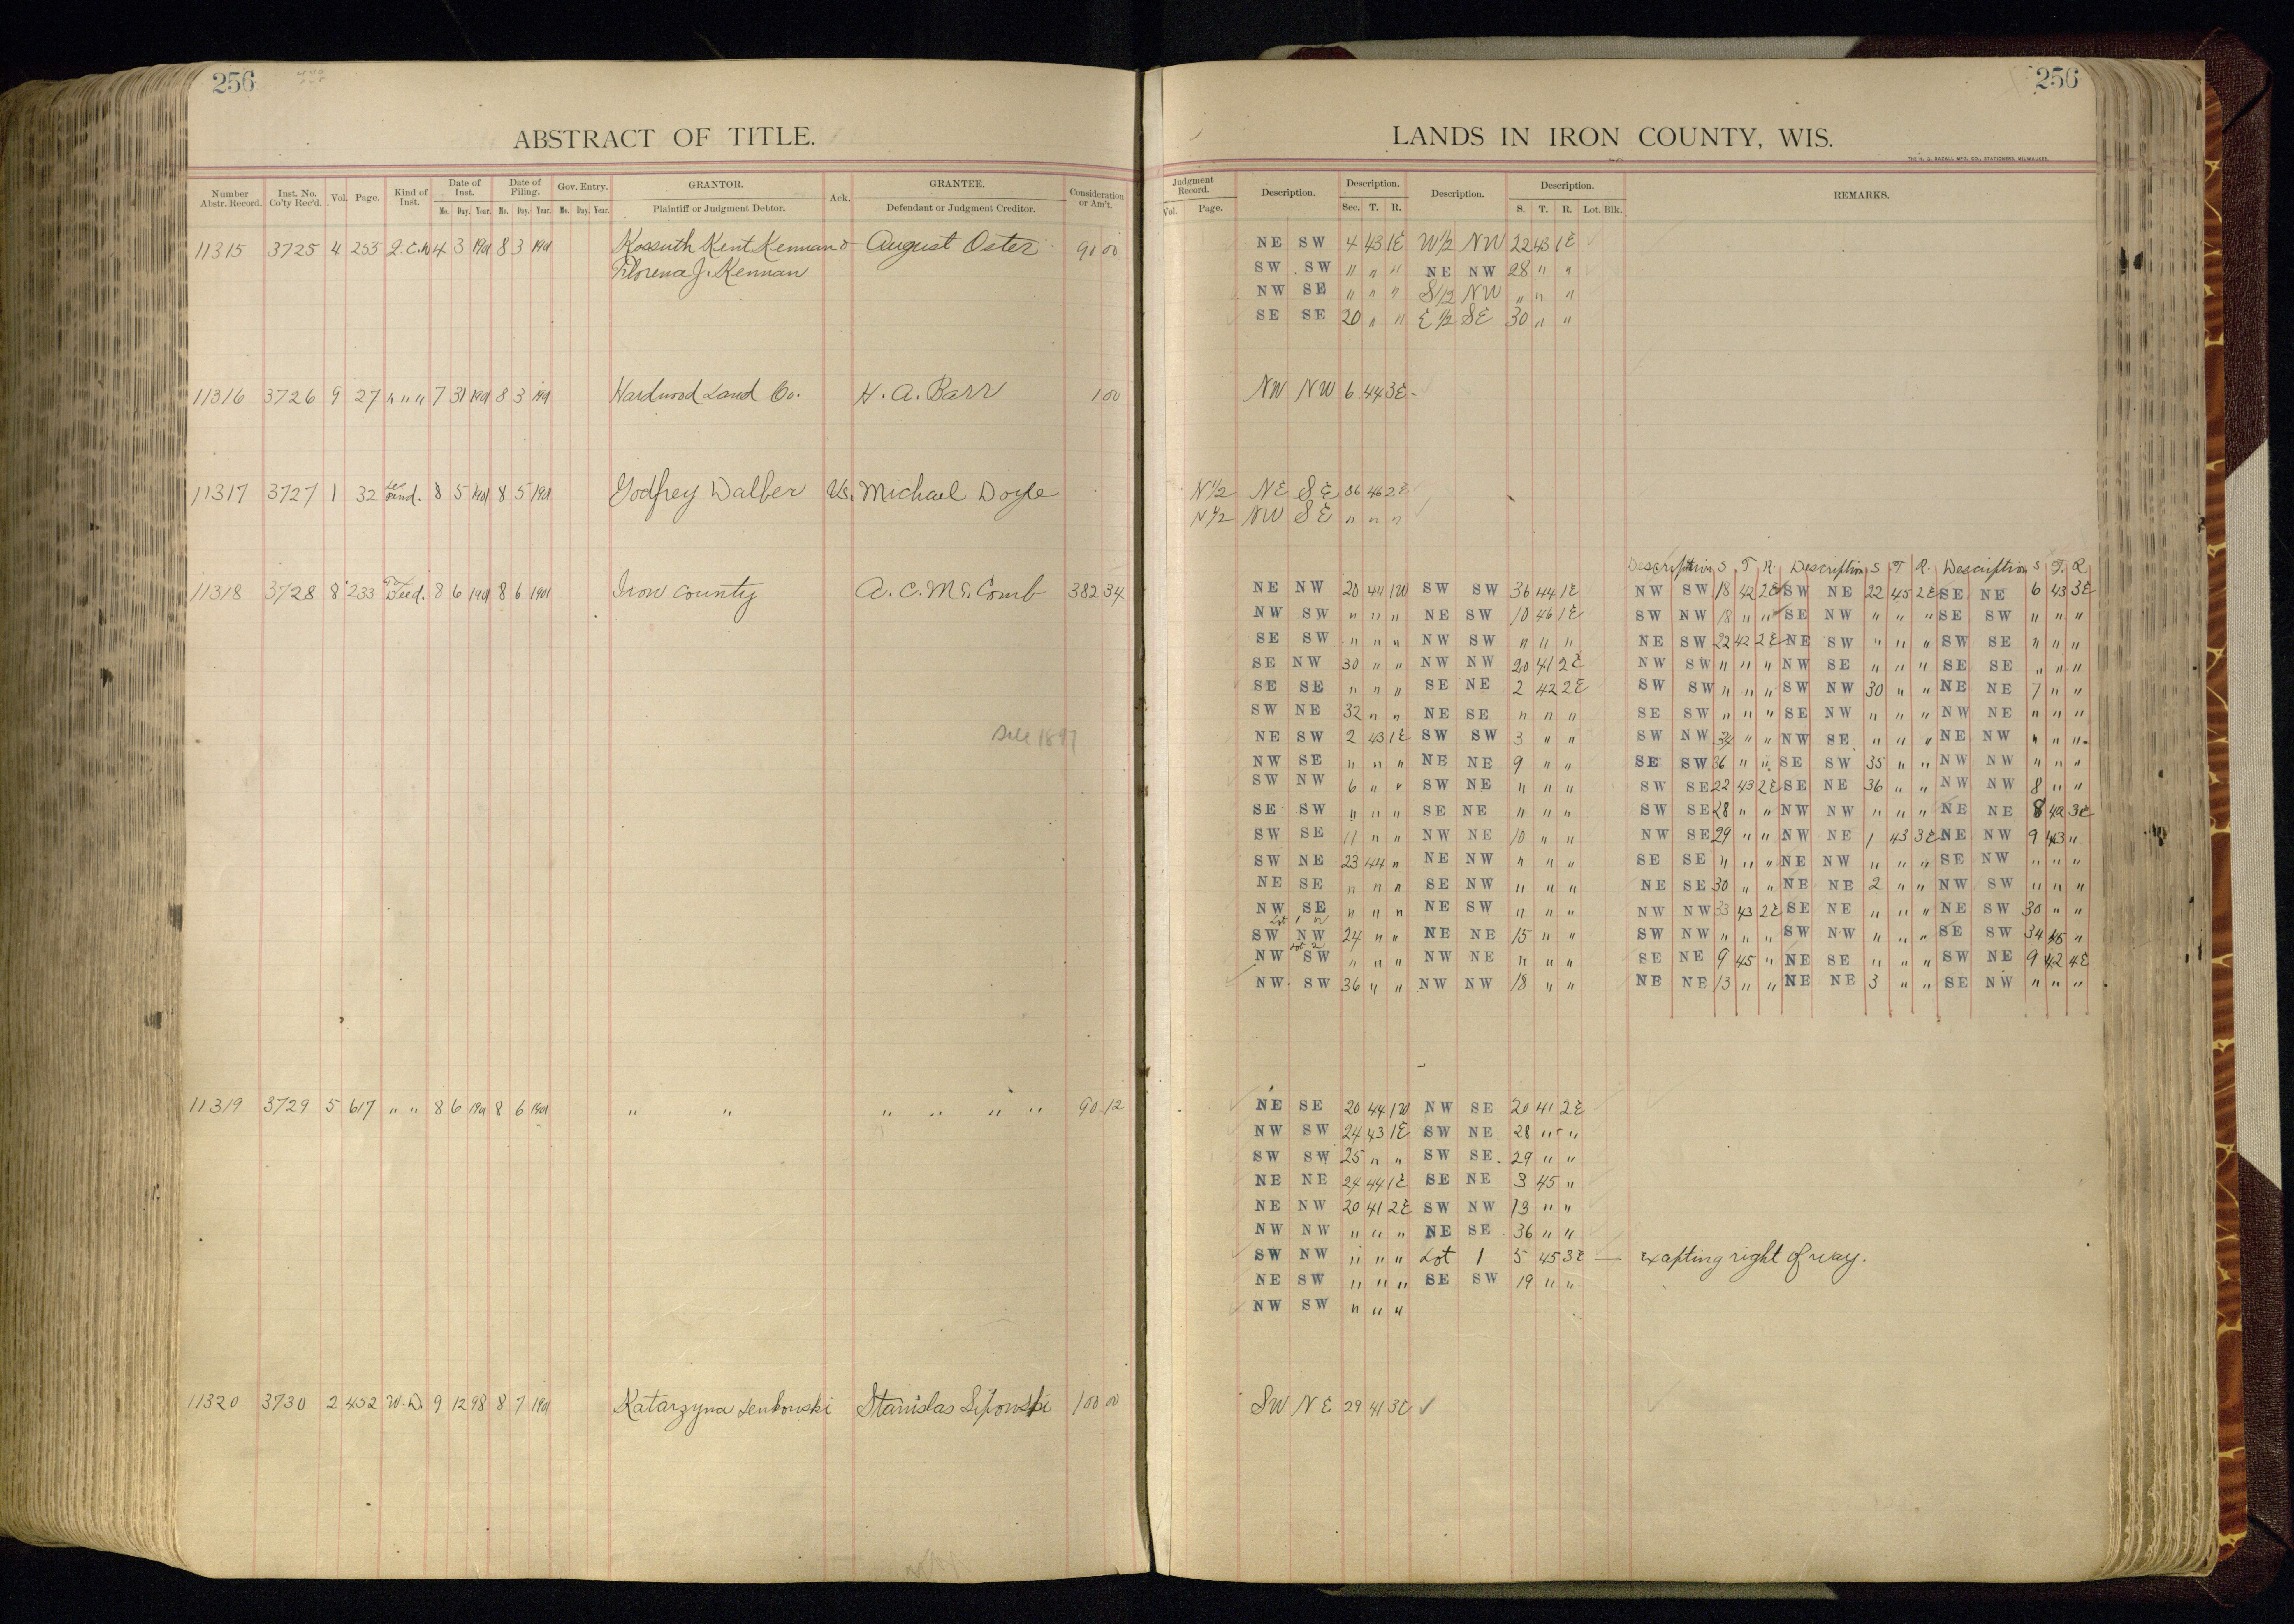 256
ABSTRACT OF TITLE.
Number Abstr. Record. Inst. No. Co'ty Rec'd. Vol. Page. Kind of Inst. Date of Inst. Mo. Day. Year. Date of Filing. Mo. Day. Year. Gov. Entry. Mo. Day. Year. GRANTOR. Plaintiff or Judgment Debtor. Ack. GRANTEE. Defendant or Judgment Creditor. Consideration or Am't.
11315 3725 4 255 Q.C.D 4 3 1901 8 3 1901 Kossuth Kent Kennan & August Oster 91 00
Florena J. Kennan
11316 3726 9 27 " " " 7 31 1901 8 3 1901 Hardwood Land Co. H. A. Barr 1 00
11317 3727 1 32 8 5 1901 8 5 1901 Godfrey Walber Vs. Michael Doyle
11318 3728 8 233 Tax Deed. 8 6 1901 8 6 1901 Iron County A. C. McComb 382 34
Sale 1897
11319 3729 5 617 " " 8 6 1901 8 6 1901 " " " " " " 90 12
11320 3730 2 452 W.D. 9 12 98 8 7 1901 Katarzyna Lenkowski Stanislas Lipowski 100 00
256
LANDS IN IRON COUNTY, WIS.
THE H. G. RAZALL MFG. CO., STATIONERS, MILWAUKEE.
Judgment Record. Vol. Page. Description. Description. Sec. T. R. Description. Description. S. T. R. Lot. Blk. REMARKS.
NE SW 4 43 1E W1/2 NW 22 43 1E
SW SW " " " NE NW 28 " "
NW SE " " " S1/2 NW " " "
SE SE 20 " " E1/2 SE 30 " "
NW NW 6 44 3E
N1/2 NE SE 36 46 2E
N1/2 NW SE " " "
Description S T R. Description S T R. Description S T. R
NE NW 20 44 1W SW SW 36 44 1E NW SW 18 42 2E SW NE 22 45 2E SE NE 6 43 3E
NW SW " " " NE SW 10 46 1E SW NW 18 " " SE NW " " " SE SW " " "
SE SW " " " NW SW " " " NE SW 22 42 2E NE SW " " " SW SE " " "
SE NW 30 " " NW NW 20 41 2E NW SW " " " NW SE " " " SE SE " " "
SE SE " " " SE NE 2 42 2E SW SW " " " SW NW 30 " " NE NE 7 " "
SW NE 32 " " NE SE " " " SE SW " " " SE NW " " " NW NE " " "
NE SW 2 43 1E SW SW 3 " " SW NW 34 " " NW SE " " " NE NW " " "
NW SE " " " NE NE 9 " " SE SW 36 " " SE SW 35 " " NW NW " " "
SW NW 6 " " SW NE " " " SW SE 22 43 2E SE NE 36 " " NW NW 8 " "
SE SW " " " SE NE " " " SW SE 28 " " NW NW " " " NE NE 8 42 3E
SW SE 11 " " NW NE 10 " " NW SE 29 " " NW NE 1 43 3E NE NW 9 43 "
SW NE 23 44 " NE NW " " " SE SE " " " NE NW " " " SE NW " " "
NE SE " " " SE NW " " " NE SE 30 " " NE NE 2 " " NW SW " " "
NW SE " " " NE SW " " " NW NW 33 43 2E SE NE " " " NE SW 30 " "
Lot 1 "
SW NW 24 " " NE NE 15 " " SW NW " " " SW NW " " " SE SW 34 45 "
Lot 2
NW SW " " " NW NE " " " SE NE 9 45 " NE SE " " " SW NE 9 42 4E
NW SW 36 " " NW NW 18 " " NE NE 13 " " NE NE 3 " " SE NW " " "
NE SE 20 44 1W NW SE 20 41 2E
NW SW 24 43 1E SW NE 28 " "
SW SW 25 " " SW SE 29 " "
NE NE 24 44 1E SE NE 3 45 "
NE NW 20 41 2E SW NW 13 " "
NW NW " " " NE SE 36 " "
SW NW " " " Lot 1 5 45 3E — Exapting right of way.
NE SW " " " SE SW 19 " "
NW SW " " "
SW NE 29 41 3E ✓